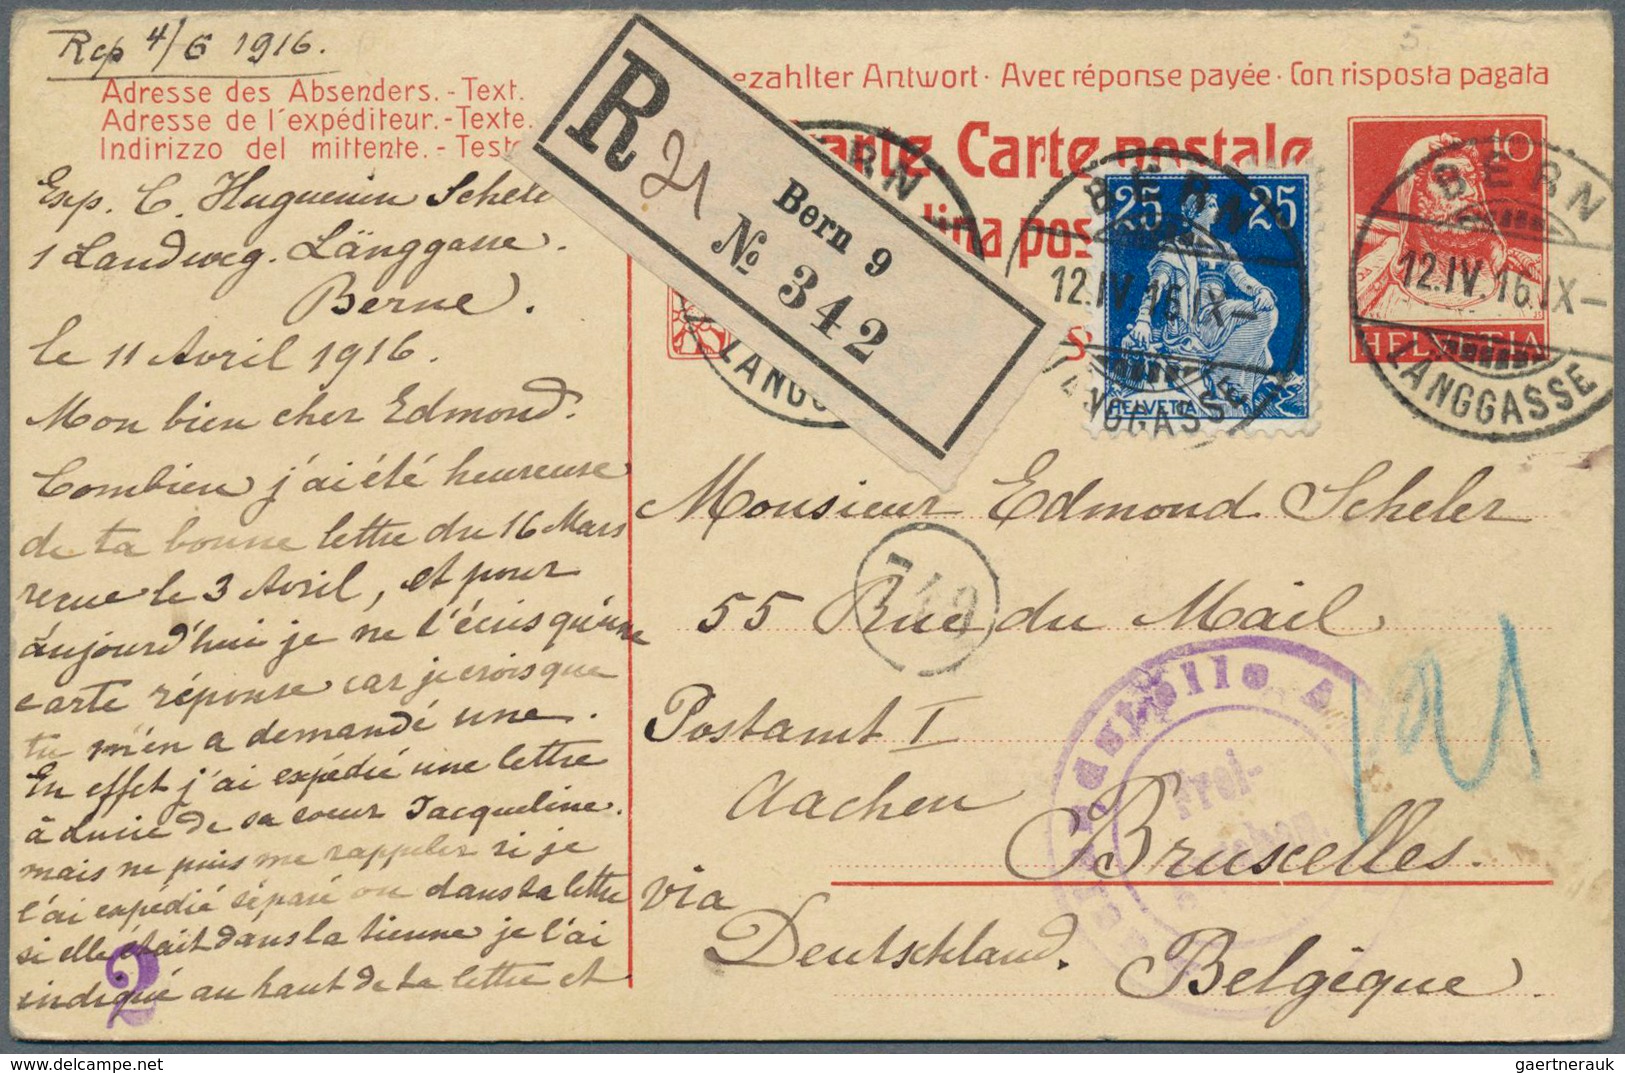 Rcp 4/6 1916.
Adresse des Absenders. - Text.
Adresse de l'expéditeur. - Texte.
Indirizzo del mittente. - Testo
Exp. C. Huguenin Scheler
1 Landweg. Länggasse.
Berne.
le 11 Avril 1916.
Mon bien cher Edmond.
Combien j'ai été heureuse
de ta bonne lettre du 16 Mars
reçue le 3 Avril, et pour
aujourd'hui je ne t'écris qu'une
carte réponse car je crois que
tu m'en a demandé une.
En effet j'ai expédié une lettre
à Lucie de sa soeur Jacqueline.
mais ne puis me rappeler si je
l'ai expédié séparé ou dans ta lettre
si elle était dans la tienne je l'ai
indiqué au haut de ta lettre et
2
ezahlter Antwort · Avec réponse payée · Con risposta pagata
arte Carte postale
lina pos
R 21
Bern 9
№ 342
BERN
LÄNGG
25 25
HELVETIA
BERN
12.IV.16.IX—
LÄNGGASSE
10
HELVETIA
BERN
12.IV.16.IX—
LÄNGGASSE
Monsieur Edmond Scheler
749
55 Rue du Mail
Postamt I
Aachen
Bruxelles.
via
Deutschland.
Belgique.
Frei-
gaertnerauk